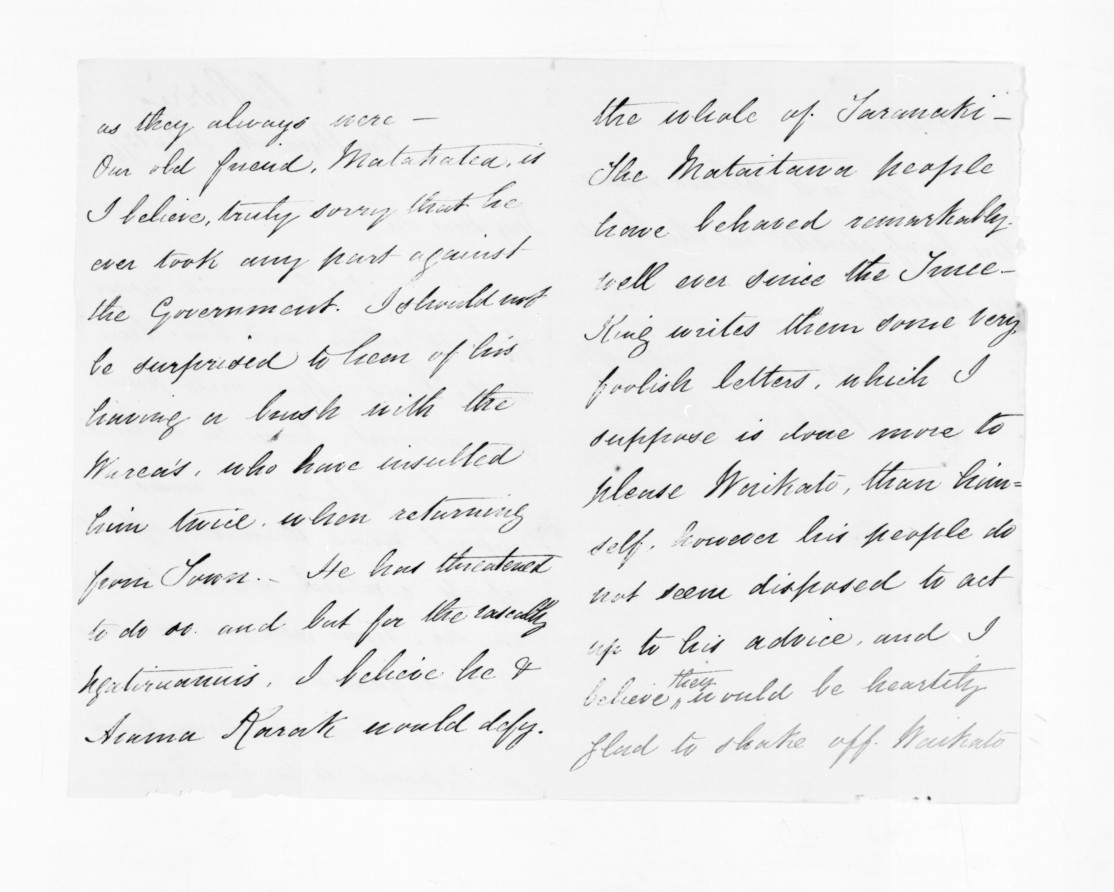 as they always were —
Our old friend, Matakatea, is
I believe, truly sorry that he
ever took any part against
the Government. I should not
be surprised to hear of his
having a brush with the
Warea's, who have insulted
him twice, when returning
from Town. — He has threatened
to do so. and but for the rascally
ngatiruanuis, I believe he &
Arama Karak would defy.
the whole of Taranaki —
The Mataitawa people
have behaved remarkably
well ever since the Truce —
King writes them some very
foolish letters, which I
suppose is done more to
please Waikato, than him=
self, however his people do
not seem disposed to act
up to his advice, and I
believe, they would be heartily
glad to shake off Waikato